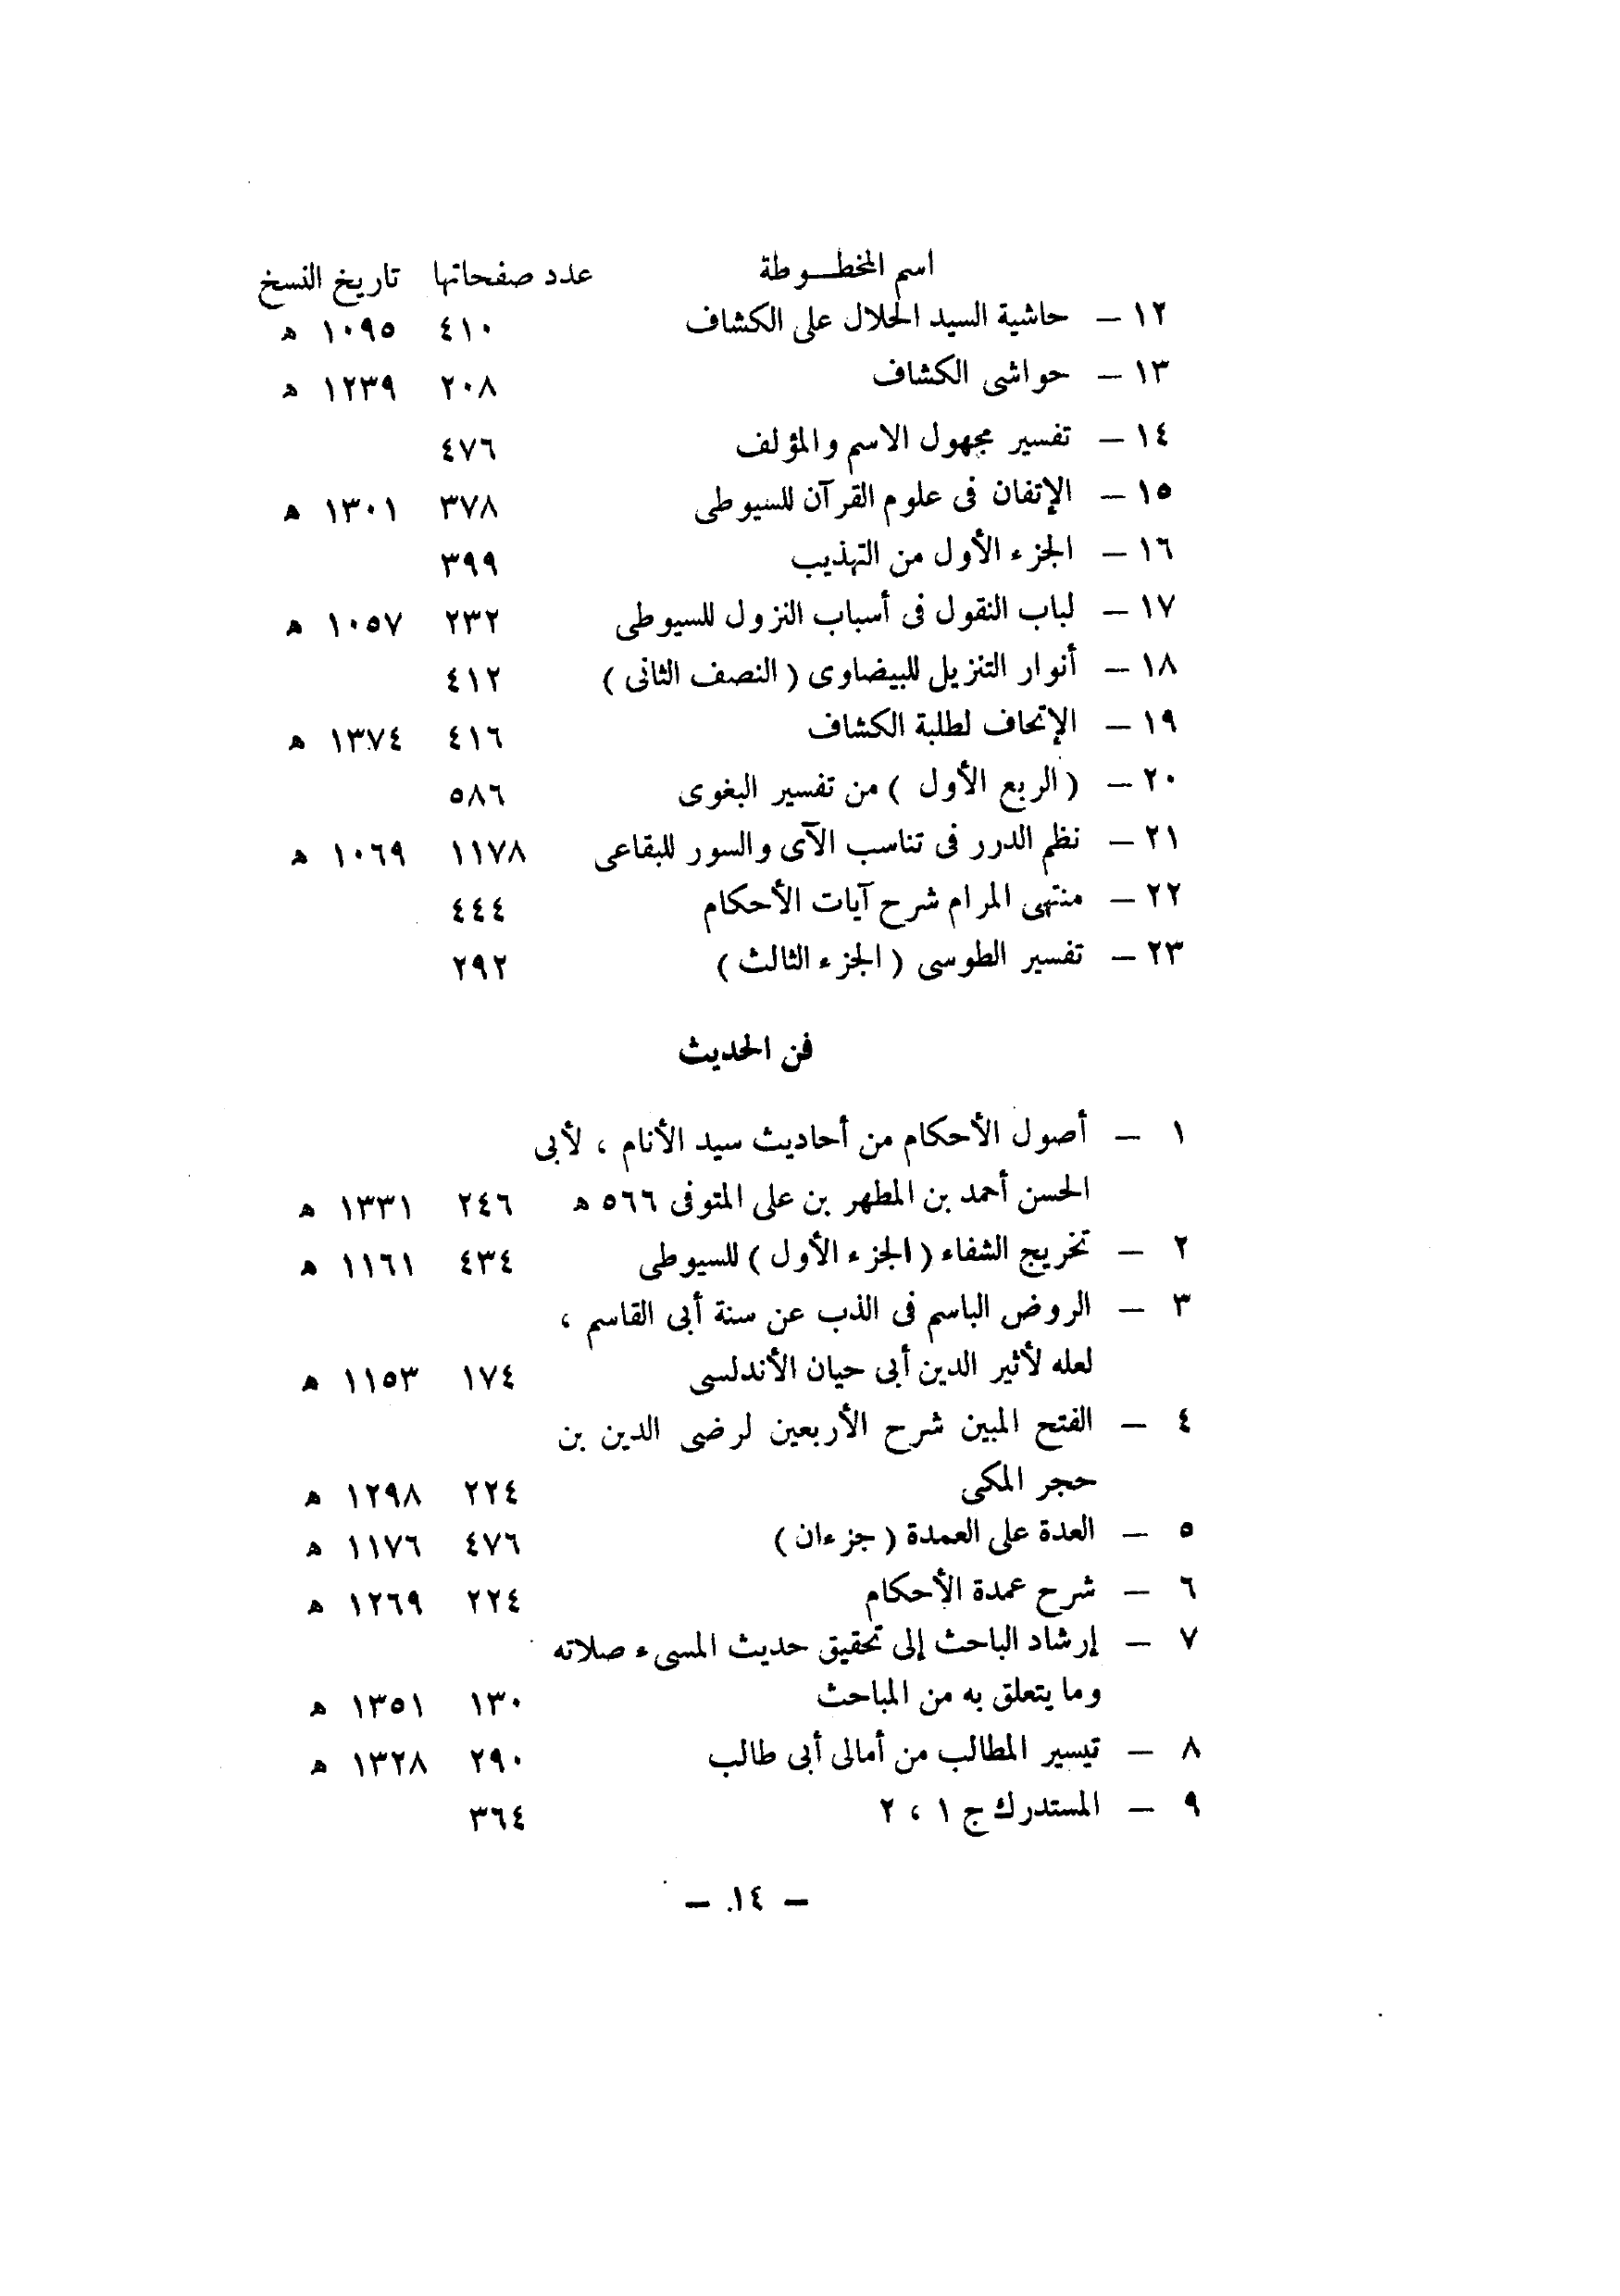 اسم المخطـوطة عدد صفحاتها تاريخ النسخ
١٢ — حاشية السيد الحلال على الكشاف ٤١٠ ١٠٩٥ ه
١٣ — حواشى الكشاف ٢٠٨ ١٢٣٩ ه
١٤ — تفسير مجهول الاسم والمؤلف ٤٧٦
١٥ — الإتفان فى علوم القرآن للسيوطى ٣٧٨ ١٣٠١ ه
١٦ — الجزء الأول من التهذيب ٣٩٩
١٧ — لباب النقول فى أسباب النزول للسيوطى ٢٣٢ ١٠٥٧ ه
١٨ — أنوار التنزيل للبيضاوى ( النصف الثانى ) ٤١٢
١٩ — الإتحاف لطلبة الكشاف ٤١٦ ١٣٧٤ ه
٢٠ — ( الربع الأول ) من تفسير البغوى ٥٨٦
٢١ — نظم الدرر فى تناسب الآى والسور للبقاعى ١١٧٨ ١٠٦٩ ه
٢٢ — منتهى المرام شرح آيات الأحكام ٤٤٤
٢٣ — تفسير الطوسى ( الجزء الثالث ) ٢٩٢
فن الحديث
١ — أصول الأحكام من أحاديث سيد الأنام ، لأبى
الحسن أحمد بن المطهر بن على المتوفى ٥٦٦ ه ٢٤٦ ١٣٣١ ه
٢ — تخريج الشفاء ( الجزء الأول ) للسيوطى ٤٣٤ ١١٦١ ه
٣ — الروض الباسم فى الذب عن سنة أبى القاسم ،
لعله لأثير الدين أبى حيان الأندلسى ١٧٤ ١١٥٣ ه
٤ — الفتح المبين شرح الأربعين لرضى الدين بن
حجر المكى ٢٢٤ ١٢٩٨ ه
٥ — العدة على العمدة ( جزءان ) ٤٧٦ ١١٧٦ ه
٦ — شرح عمدة الأحكام ٢٢٤ ١٢٦٩ ه
٧ — إرشاد الباحث إلى تحقيق حديث المسىء صلاته
وما يتعلق به من المباحث ١٣٠ ١٣٥١ ه
٨ — تيسير المطالب من أمالى أبى طالب ٢٩٠ ١٣٢٨ ه
٩ — المستدرك ج ١ ، ٢ ٣٦٤
— ١٤ —